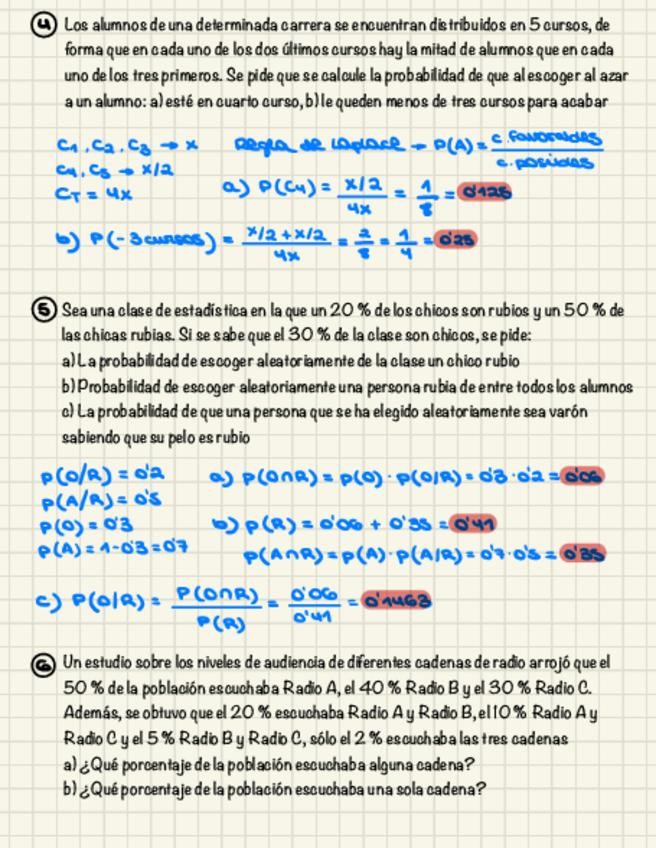 4 Los alumnos de una determinada carrera se encuentran distribuidos en 5 cursos, de
forma que en cada uno de los dos últimos cursos hay la mitad de alumnos que en cada
uno de los tres primeros. Se pide que se calcule la probabilidad de que al escoger al azar
a un alumno: a) esté en cuarto curso, b) le queden menos de tres cursos para acabar
C1, C2, C3 → x Regla de Laplace → P(A) = c. favorables / c. posibles
C4, C5 → x/2
CT = 4x a) P(C4) = x/2 / 4x = 1/8 = 0'125
b) P(-3 cursos) = x/2 + x/2 / 4x = 2/8 = 1/4 = 0'25
5 Sea una clase de estadística en la que un 20 % de los chicos son rubios y un 50 % de
las chicas rubias. Si se sabe que el 30 % de la clase son chicos, se pide:
a) La probabilidad de escoger aleatoriamente de la clase un chico rubio
b) Probabilidad de escoger aleatoriamente una persona rubia de entre todos los alumnos
c) La probabilidad de que una persona que se ha elegido aleatoriamente sea varón
sabiendo que su pelo es rubio
P(O/R) = 0'2 a) P(O∩R) = P(O) · P(O/R) = 0'3 · 0'2 = 0'06
P(A/R) = 0'5
P(O) = 0'3 b) P(R) = 0'06 + 0'35 = 0'41
P(A) = 1-0'3 = 0'7 P(A∩R) = P(A) · P(A/R) = 0'7 · 0'5 = 0'35
c) P(O/R) = P(O∩R) / P(R) = 0'06 / 0'41 = 0'1463
6 Un estudio sobre los niveles de audiencia de diferentes cadenas de radio arrojó que el
50 % de la población escuchaba Radio A, el 40 % Radio B y el 30 % Radio C.
Además, se obtuvo que el 20 % escuchaba Radio A y Radio B, el 10 % Radio A y
Radio C y el 5 % Radio B y Radio C, sólo el 2 % escuchaba las tres cadenas
a) ¿Qué porcentaje de la población escuchaba alguna cadena?
b) ¿Qué porcentaje de la población escuchaba una sola cadena?